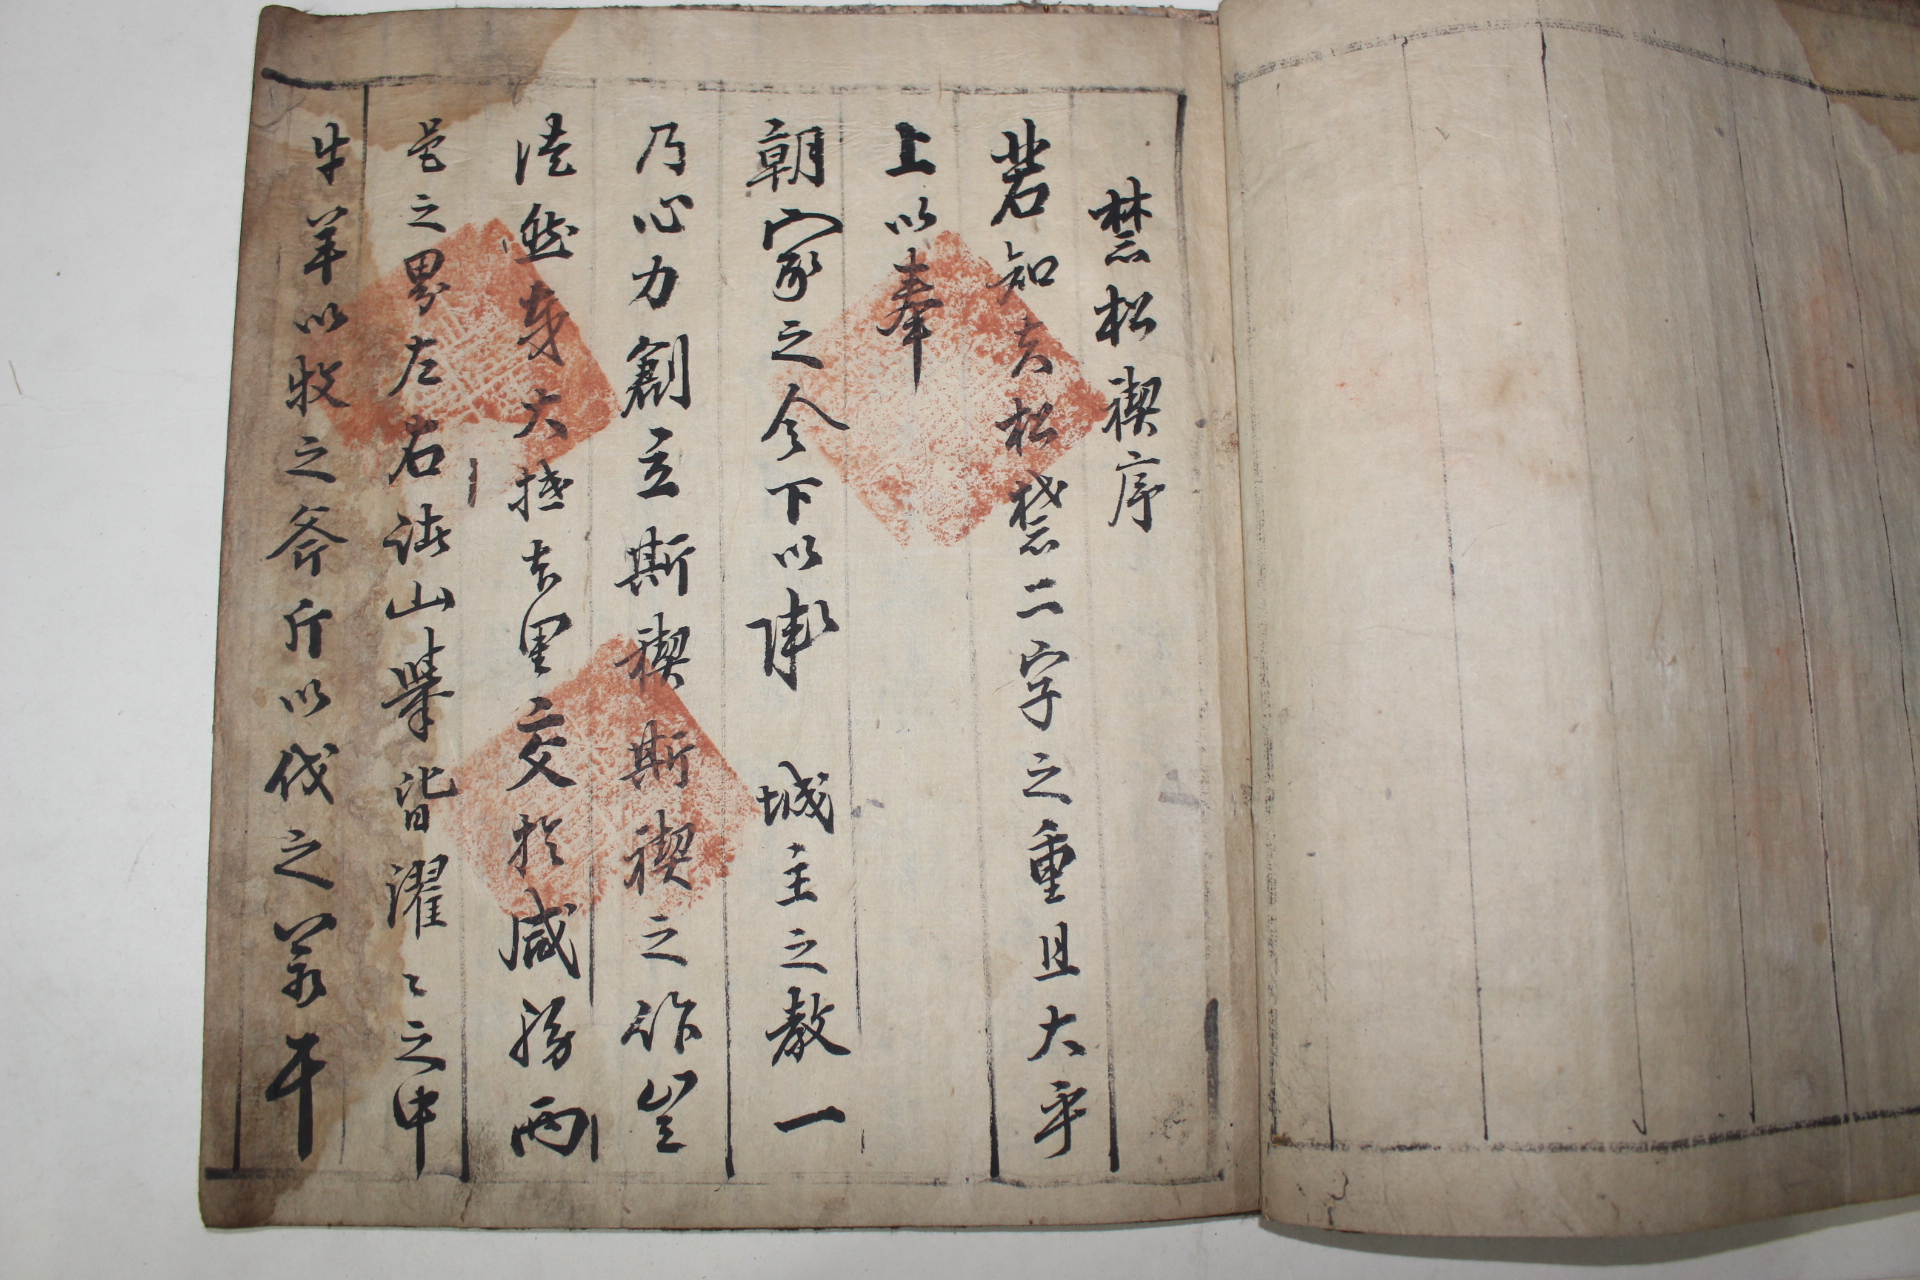 禁松禊序
若知夫松禁二字之重且大乎
上以奉
朝家之令下以承 城主之教一
乃心力創立斯禊斯禊之作豈
徒然哉大抵吾里交於咸勝兩
邑之界左右諸山擧皆濯〻之中
牛羊以牧之斧斤以伐之若干